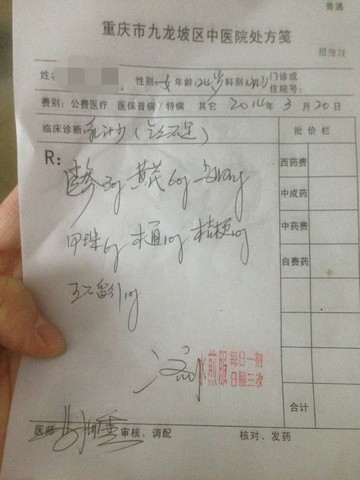 普通
重庆市九龙坡区中医院处方笺
姓名 性别 女 年龄 24岁 科别 门诊或住院号:
费别: 公费医疗 医保普病/特病 其它 2014年3月20日
临床诊断 乳汁少 批价栏
R:
西药费
中成药
中药费
自费药
合计
黄芪60g
甲珠6g 木通10g 桔梗10g
王不留行10g
水煎服 每日一剂
日服三次
医师 审核、调配 核对、发药